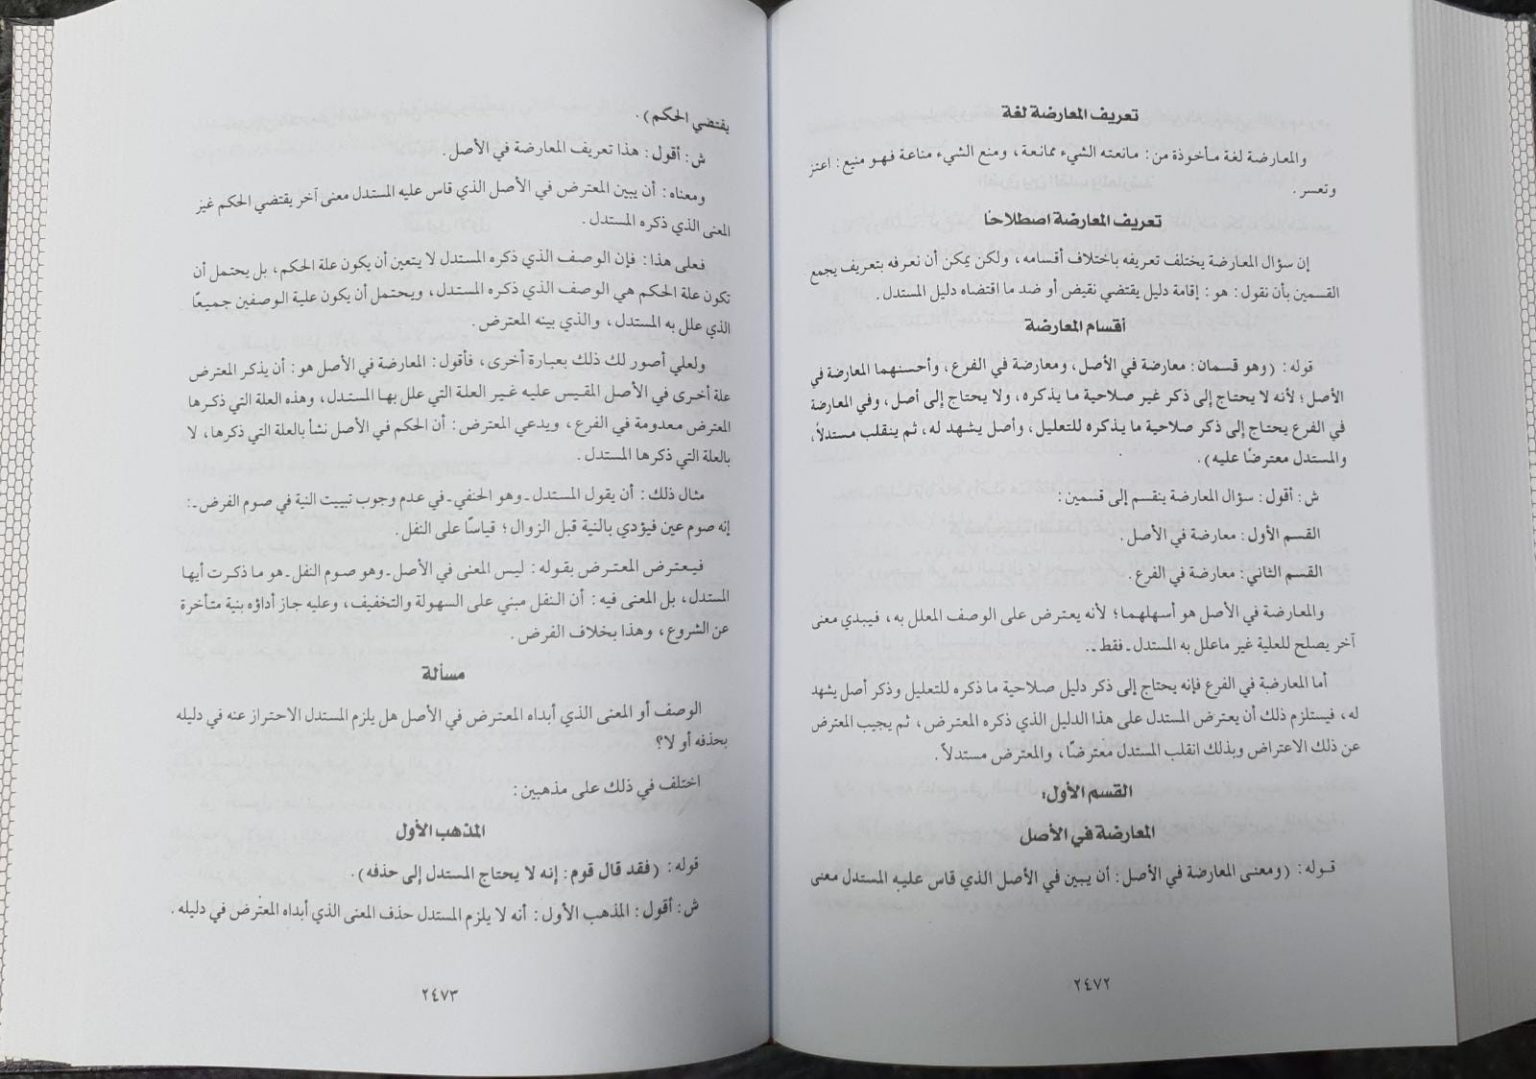 تعريف المعارضة لغة
والمعارضة لغة مأخوذة من: مانعته الشيء ممانعة، ومنع الشيء مناعة فهو منيع: اعتز
وتعسر.
تعريف المعارضة اصطلاحًا
إن سؤال المعارضة يختلف تعريفه باختلاف أقسامه، ولكن يمكن أن نعرفه بتعريف يجمع
القسمين بأن نقول: هو: إقامة دليل يقتضي نقيض أو ضد ما اقتضاه دليل المستدل.
أقسام المعارضة
قوله: (وهو قسمان: معارضة في الأصل، ومعارضة في الفرع، وأحسنهما المعارضة في
الأصل؛ لأنه لا يحتاج إلى ذكر غير صلاحية ما يذكره، ولا يحتاج إلى أصل، وفي المعارضة
في الفرع يحتاج إلى ذكر صلاحية ما يذكره للتعليل، وأصل يشهد له، ثم ينقلب مستدلاً،
والمستدل معترضًا عليه).
ش: أقول: سؤال المعارضة ينقسم إلى قسمين:
القسم الأول: معارضة في الأصل.
القسم الثاني: معارضة في الفرع.
والمعارضة في الأصل هو أسهلهما؛ لأنه يعترض على الوصف المعلل به، فيبدي معنى
آخر يصلح للعلية غير ماعلل به المستدل ـ فقط ـ.
أما المعارضة في الفرع فإنه يحتاج إلى ذكر دليل صلاحية ما ذكره للتعليل وذكر أصل يشهد
له، فيستلزم ذلك أن يعترض المستدل على هذا الدليل الذي ذكره المعترض، ثم يجيب المعترض
عن ذلك الاعتراض وبذلك انقلب المستدل معترضًا، والمعترض مستدلاً.
القسم الأول:
المعارضة في الأصل
قوله: (ومعنى المعارضة في الأصل: أن يبين في الأصل الذي قاس عليه المستدل معنى
٢٤٧٢
يقتضي الحكم).
ش: أقول: هذا تعريف المعارضة في الأصل.
ومعناه: أن يبين المعترض في الأصل الذي قاس عليه المستدل معنى آخر يقتضي الحكم غير
المعنى الذي ذكره المستدل.
فعلى هذا: فإن الوصف الذي ذكره المستدل لا يتعين أن يكون علة الحكم، بل يحتمل أن
تكون علة الحكم هي الوصف الذي ذكره المستدل، ويحتمل أن يكون علية الوصفين جميعًا
الذي علل به المستدل، والذي بينه المعترض.
ولعلي أصور لك ذلك بعبارة أخرى، فأقول: المعارضة في الأصل هو: أن يذكر المعترض
علة أخرى في الأصل المقيس عليه غير العلة التي علل بها المستدل، وهذه العلة التي ذكرها
المعترض معدومة في الفرع، ويدعي المعترض: أن الحكم في الأصل نشأ بالعلة التي ذكرها، لا
بالعلة التي ذكرها المستدل.
مثال ذلك: أن يقول المستدل ـ وهو الحنفي ـ في عدم وجوب تبييت النية في صوم الفرض ـ:
إنه صوم عين فيؤدي بالنية قبل الزوال؛ قياسًا على النفل.
فيعترض المعترض بقوله: ليس المعنى في الأصل ـ وهو صوم النفل ـ هو ما ذكرت أيها
المستدل، بل المعنى فيه: أن النفل مبني على السهولة والتخفيف، وعليه جاز أداؤه بنية متأخرة
عن الشروع، وهذا بخلاف الفرض.
مسألة
الوصف أو المعنى الذي أبداه المعترض في الأصل هل يلزم المستدل الاحتراز عنه في دليله
بحذفه أو لا؟
اختلف في ذلك على مذهبين:
المذهب الأول
قوله: (فقد قال قوم: إنه لا يحتاج المستدل إلى حذفه).
ش: أقول: المذهب الأول: أنه لا يلزم المستدل حذف المعنى الذي أبداه المعترض في دليله.
٢٤٧٣